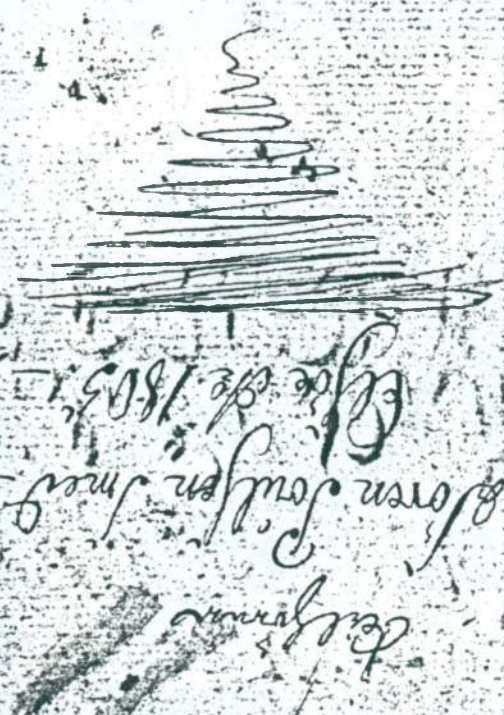 Tilhører
Søren Poulsen Smed
Elsøe 1803